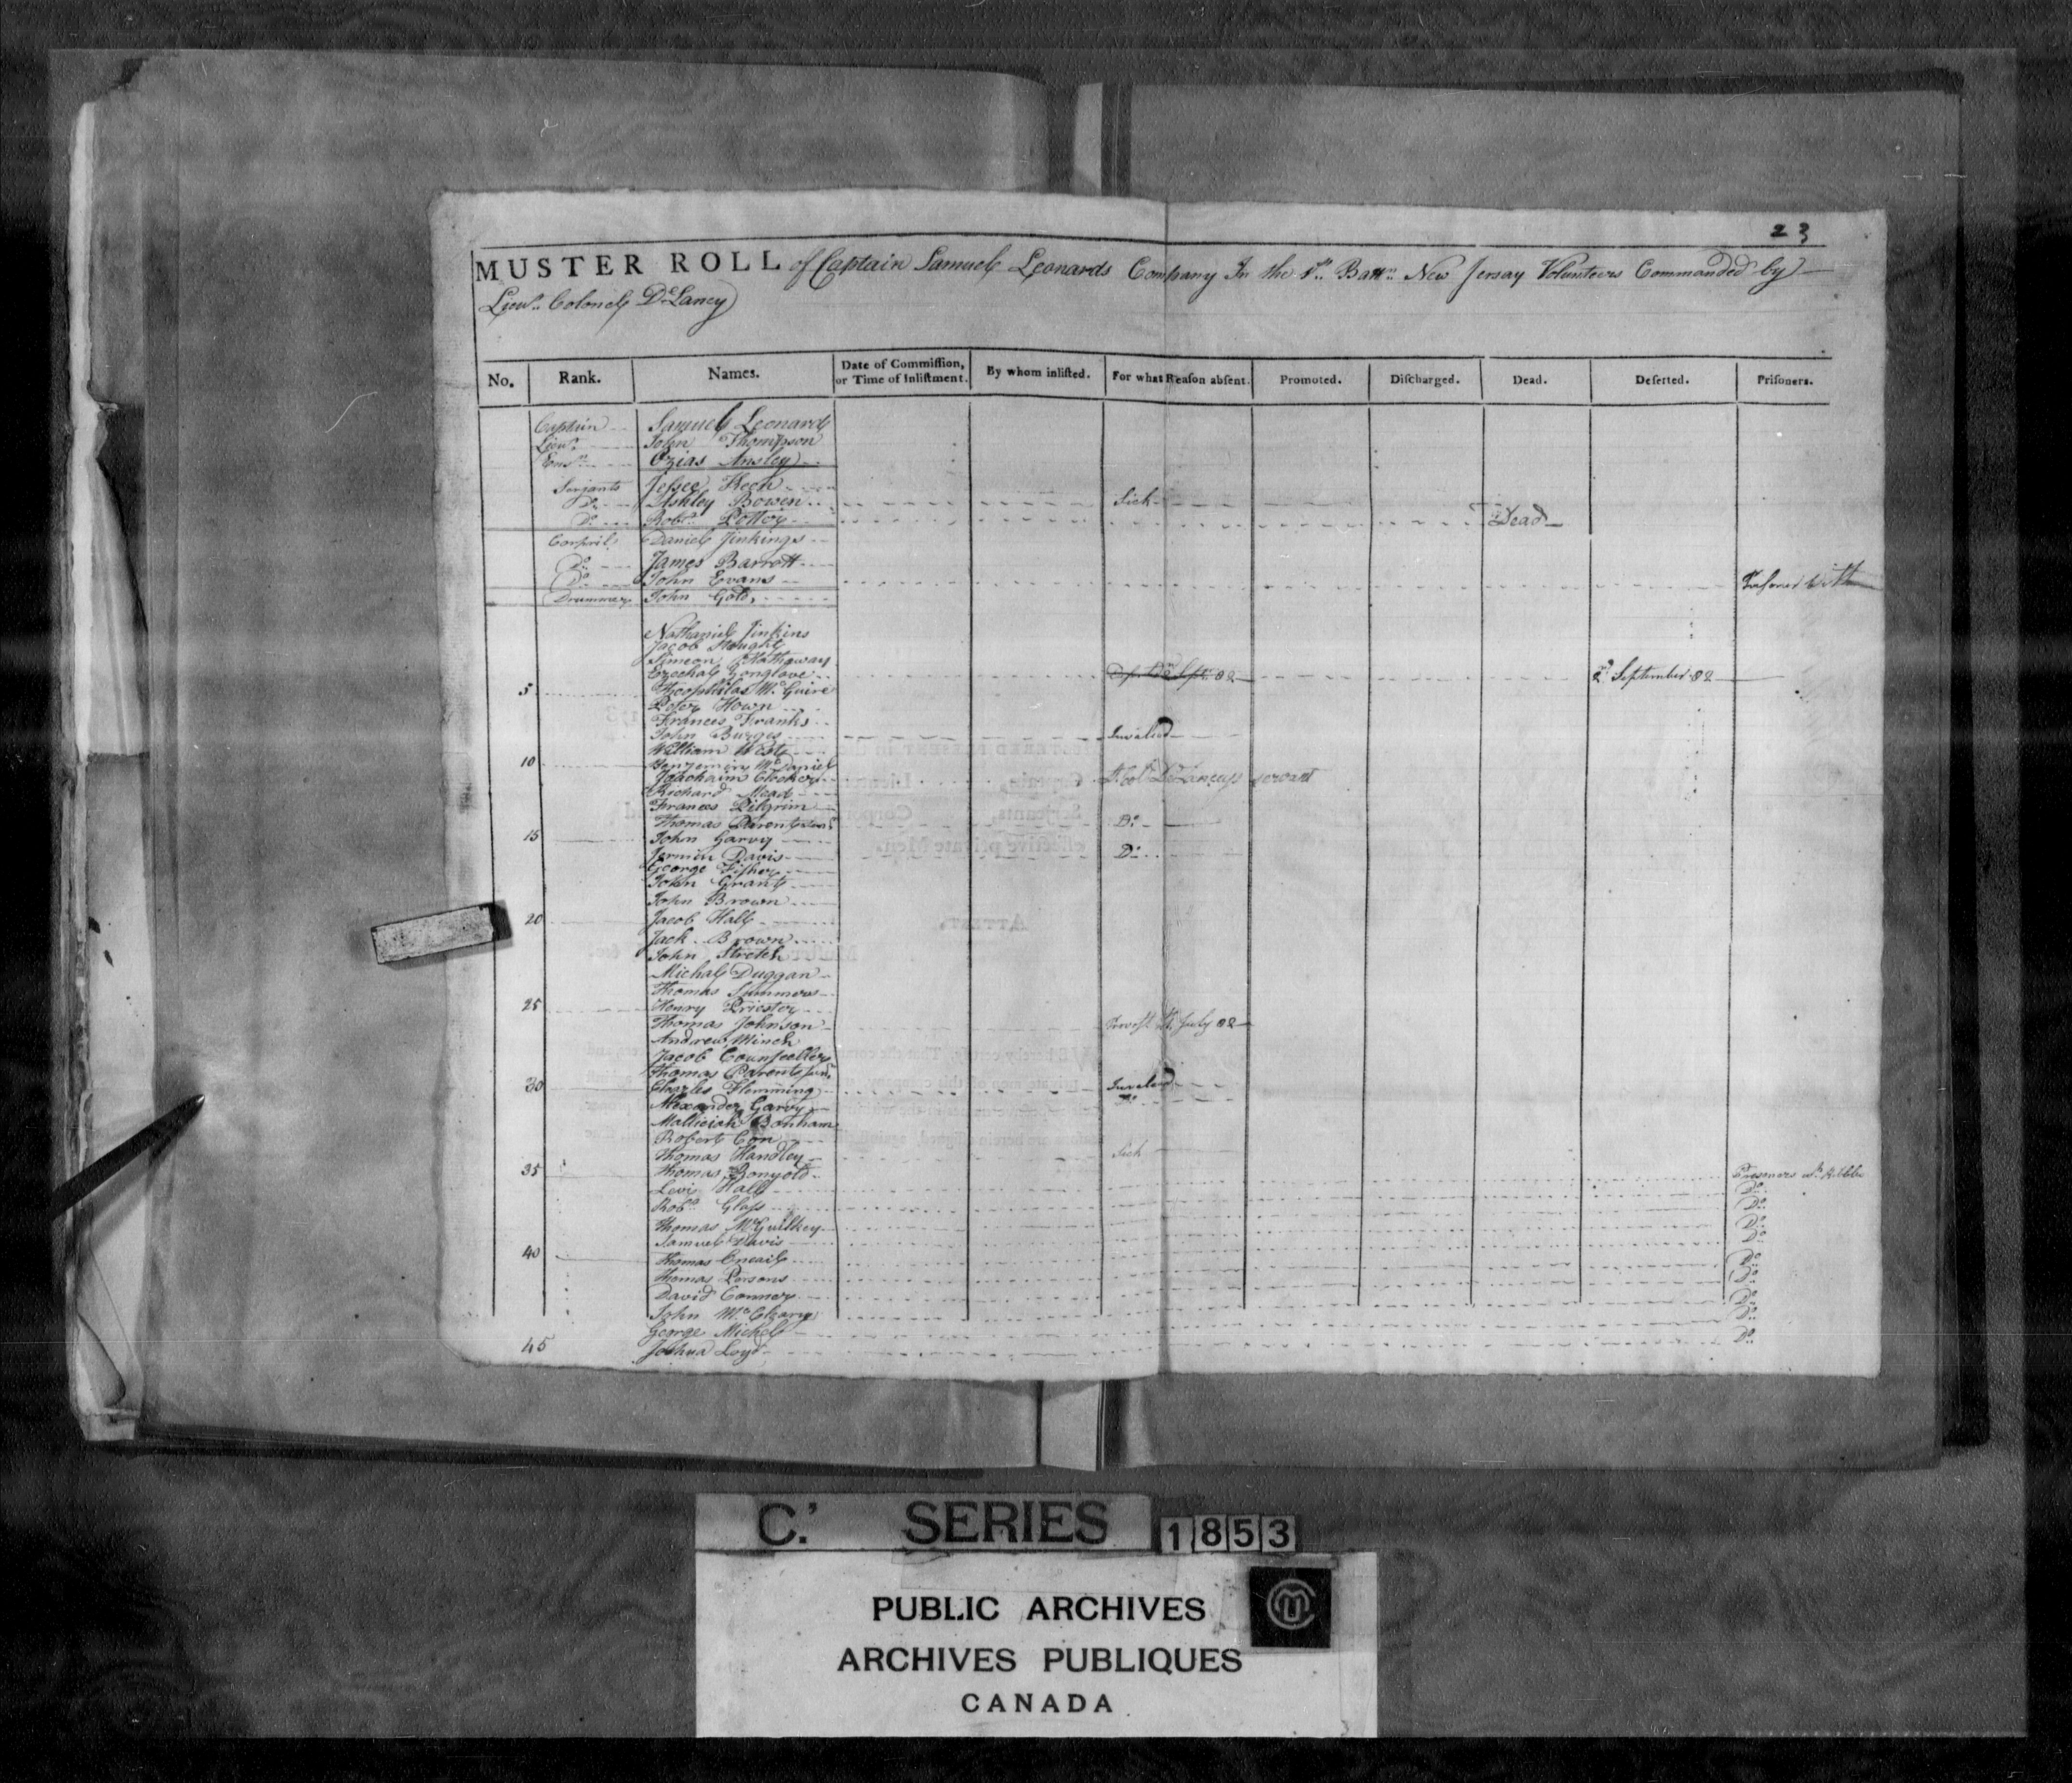 23
MUSTER ROLL of Captain Samuel Leonards Company In the 1st Battn New Jersay Volunteers Commanded by
Lieut Colonel DeLancy
No. Rank. Names. Date of Commiſſion, or Time of Inliſtment. By whom inliſted. For what Reaſon abſent. Promoted. Diſcharged. Dead. Deſerted. Priſoners.
Captain Samuel Leonard
Lieut John Thompson
Ensn Ozias Ansley
Serjants Jessee Keen
Do Ashley Bowen Sick
Do Robt Potter Dead
Corpril Daniel Jinkings
Do James Barrott
Do John Evans
Drummer John Gold
Nathaniel Jinkins
Jacob Slought
Simeon Hathaway
Ezechal Conglove 2d September 82
5 Theophilas McGuire
Peter Hown
Frances Franks
John Burges Invalied
William West
10 Benjemin McDaniel
Joachaim Clocker Lt Col DeLanceys servant
Richard Mead
Frances Pilgrim
Thomas Parents Do
15 John Garvy
Jermin Davis Do
George Fisher
John Grant
John Brown
20 Jacob Hall
Jack Brown
John Stretch
Michal Duggan
Thomas Summers
25 Henry Priester
Thomas Johnson July 82
Andrew Minch
Jacob Counsellor
Thomas Parents Junr
30 Charles Flemming Invalied
Alexander Garvy Do
Malliciah Bonham
Robert Con
Thomas Handley Sick
35 Thomas Bonyold Presoners
Levi Hall Do
Robt Glass Do
Thomas McGuilkey Do
Samuel Davis Do
40 Thomas Cneail Do
Thomas Parsons Do
David Conner Do
John McCleary Do
George Michel
45 Joshua Loyd Do
C. SERIES 1853
PUBLIC ARCHIVES
ARCHIVES PUBLIQUES
CANADA